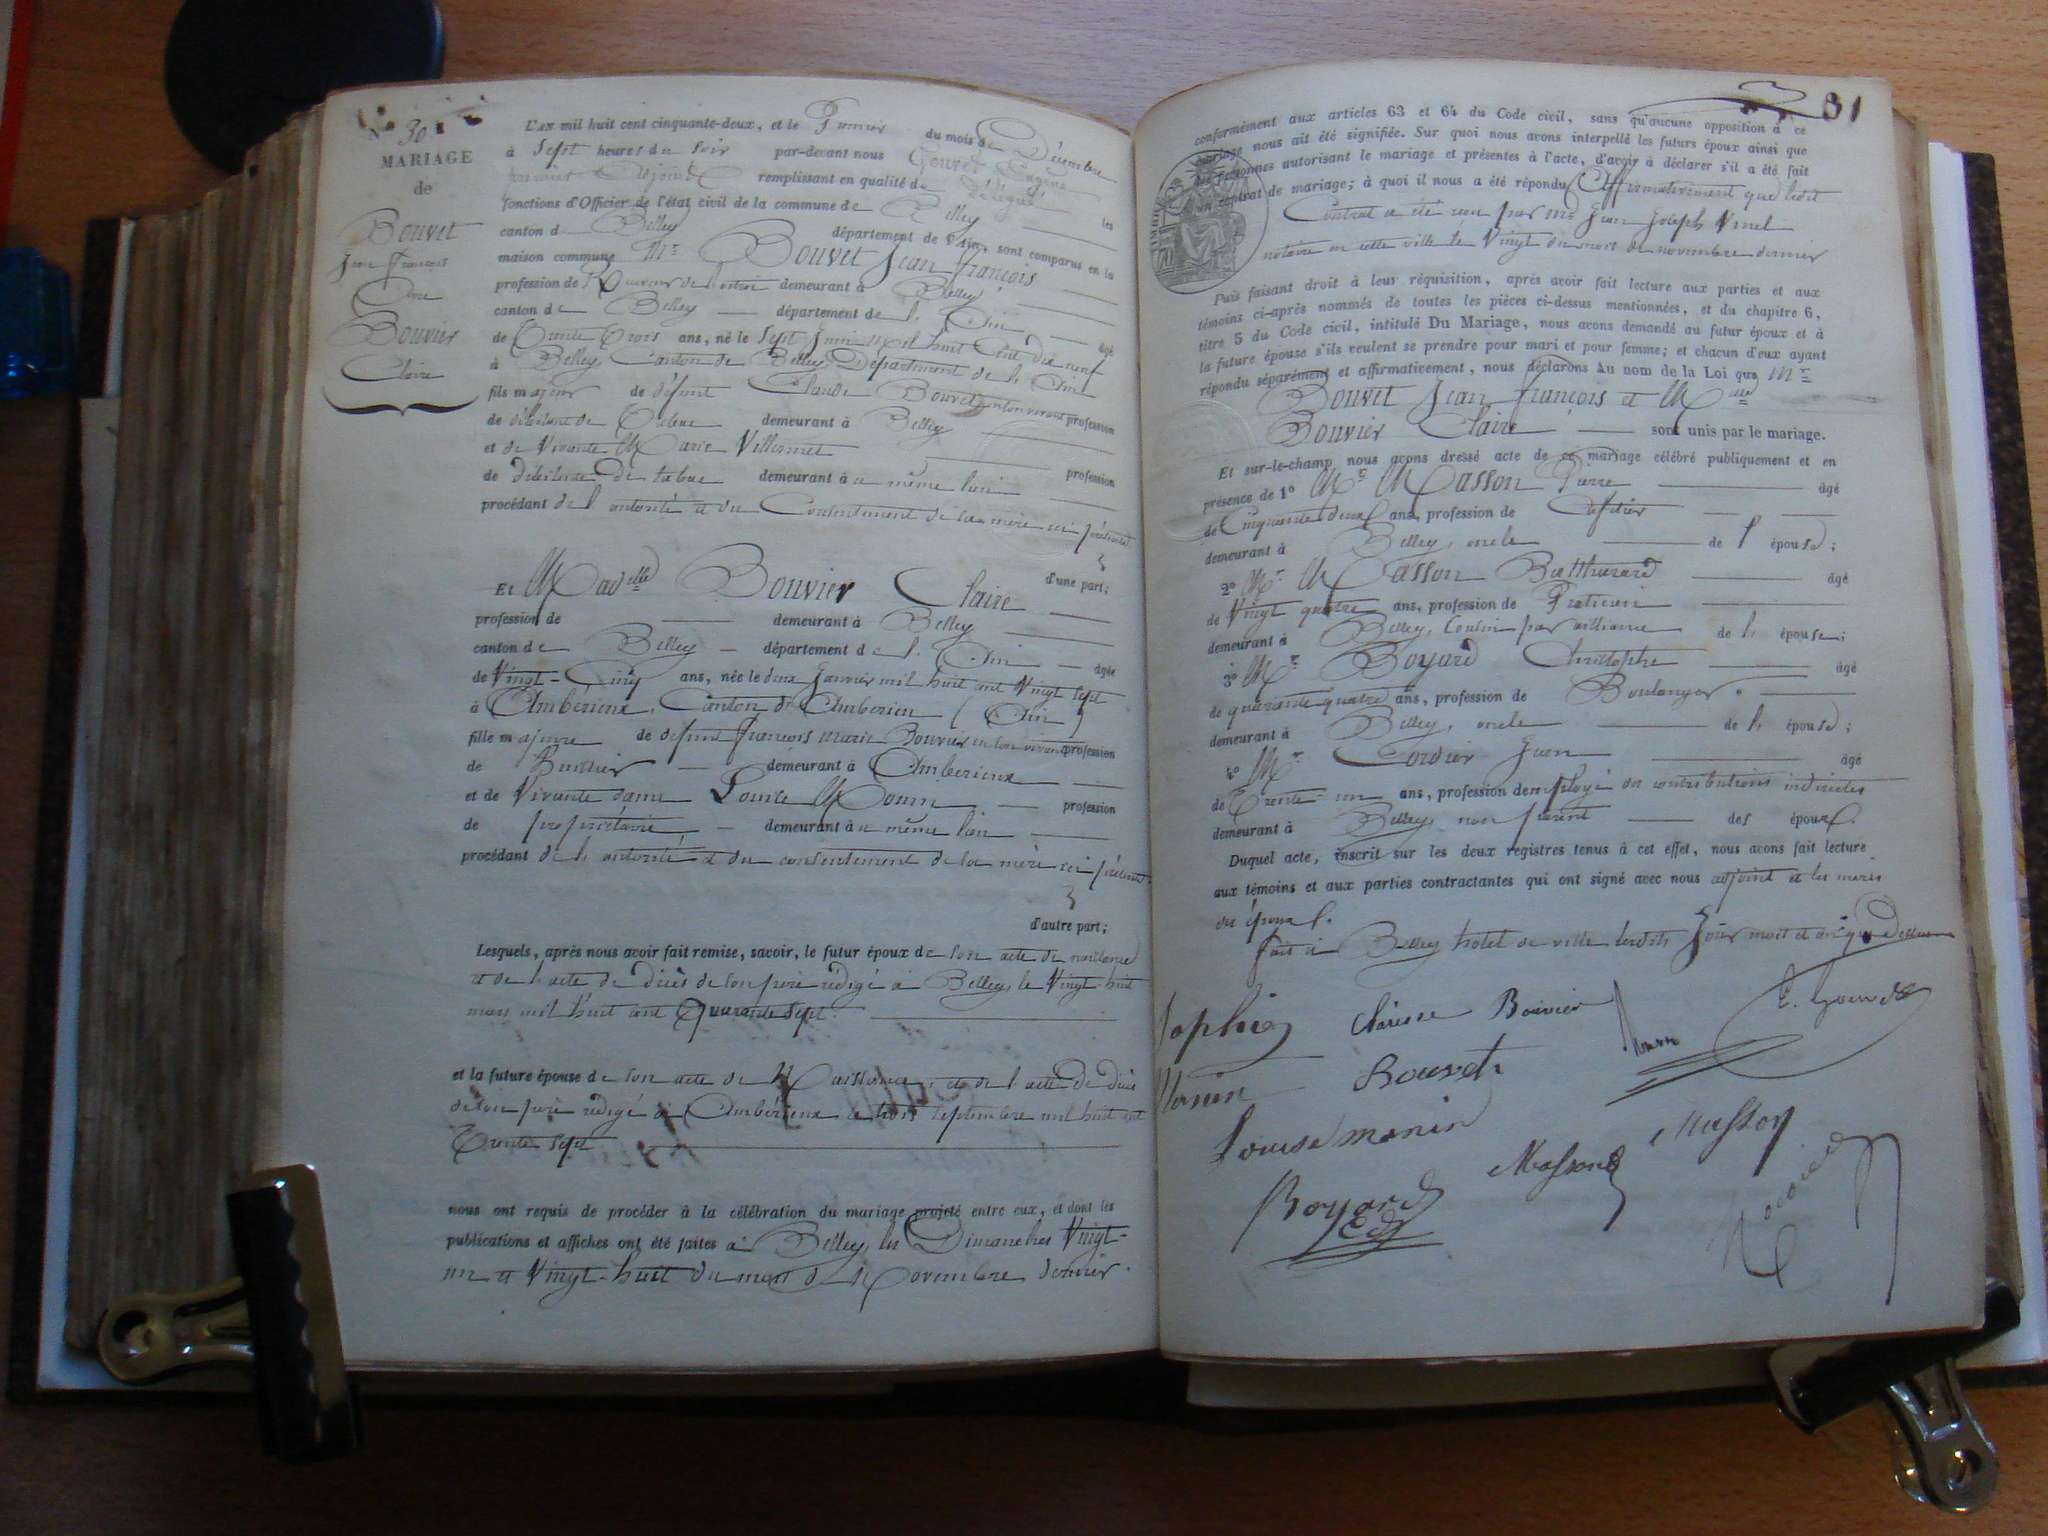 N° 30
MARIAGE
de
Bouvet
Jean François
Et
Bouvier
Claire
L'AN mil huit cent cinquante-deux, et le Premier du mois de Décembre
à Sept heures du soir par-devant nous Gouret Eugène
premier adjoint remplissant en qualité de délégué les
fonctions d'Officier de l'état civil de la commune de Belley
canton d Belley département de l'Ain, sont comparus en la
maison commune Mr Bouvet Jean François
profession de demeurant à Belley
canton de Belley département de l'Ain âgé
de Trente Trois ans, né le Sept Juin mil huit Cent dix neuf
à Belley Canton de Belley Département de l'Ain
fils majeur de défunt Claude Bouvet en son vivant profession
de débitant de Tabac demeurant à Belley
et de Vivante Marie profession
de débitante de tabac demeurant au même lieu
procédant de l'autorité et du Consentement de sa mère ici présente
d'une part;
Et Madelle Bouvier Claire
profession de demeurant à Belley
canton de Belley département de l'Ain âgée
de Vingt-Cinq ans, née le deux Janvier mil huit cent Vingt sept
à Ambérieux, Canton d'Ambérieu (Ain)
fille majeure de défunt François Marie Bouvier en son vivant profession
de huissier demeurant à Ambérieux
et de Vivante dame Louise Monin profession
de propriétaire demeurant au même lieu
procédant de l'autorité et du consentement de la mère ici présente
d'autre part;
Lesquels, après nous avoir fait remise, savoir, le futur époux de son acte de naissance
et de l'acte de décès de son père rédigé à Belley, le Vingt-huit
mars mil huit cent Quarante sept
et la future épouse de son acte de Naissance, et de l'acte de décès
de son père rédigé à Ambérieux le trois septembre mil huit cent
Trente sept
nous ont requis de procéder à la célébration du mariage projeté entre eux, et dont les
publications et affiches ont été faites à Belley, les Dimanches Vingt-
un et Vingt-huit du mois de Novembre dernier.
81
conformément aux articles 63 et 64 du Code civil, sans qu'aucune opposition à ce
mariage nous ait été signifiée. Sur quoi nous avons interpellé les futurs époux ainsi que
les personnes autorisant le mariage et présentes à l'acte, d'avoir à déclarer s'il a été fait
un contrat de mariage; à quoi il nous a été répondu Affirmativement que ledit
Contrat a été reçu par me Jean Joseph Vinel
notaire en cette ville le Vingt du mois de novembre dernier
Puis faisant droit à leur réquisition, après avoir fait lecture aux parties et aux
témoins ci-après nommés de toutes les pièces ci-dessus mentionnées, et du chapitre 6,
titre 5 du Code civil, intitulé Du Mariage, nous avons demandé au futur époux et à
la future épouse s'ils veulent se prendre pour mari et pour femme; et chacun d'eux ayant
répondu séparément et affirmativement, nous déclarons Au nom de la Loi que Mr
Bouvet Jean François et Melle
Bouvier Claire sont unis par le mariage.
Et sur-le-champ nous avons dressé acte de ce mariage célébré publiquement et en
présence de 1° Mr Masson Pierre âgé
de Cinquante deux ans, profession de Cafetier
demeurant à Belley, oncle de l'épouse;
2° Mr Masson Balthazard âgé
de Vingt quatre ans, profession de Praticien
demeurant à Belley, Cousin par alliance de l'épouse;
3° Mr Boyard Christophe âgé
de quarante quatre ans, profession de Boulanger
demeurant à Belley, oncle de l'épouse;
4° Mr Cordier Jean âgé
de Trente-un ans, profession d'employé des contributions indirectes
demeurant à Belley, non parent des époux.
Duquel acte, inscrit sur les deux registres tenus à cet effet, nous avons fait lecture
aux témoins et aux parties contractantes qui ont signé avec nous adjoint et les mères
des époux.
Fait à Belley hôtel de ville lesdits Jour mois et an que dessus
Sophie Clarisse Bouvier
Monin Bouvet
Louise monin Masson
Boyard Masson